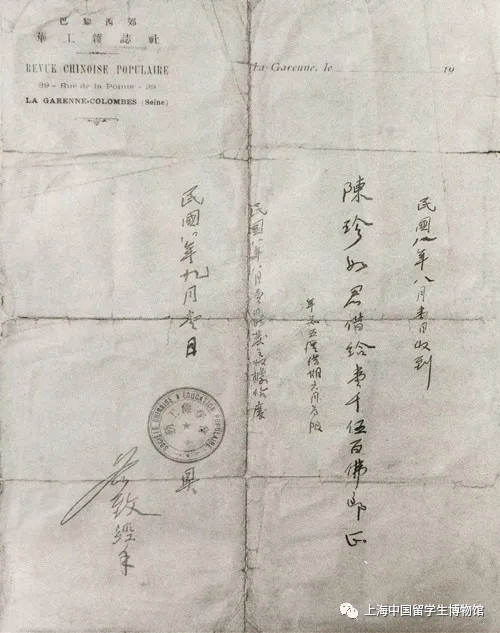 巴黎西郊
華工雜誌社
REVUE CHINOISE POPULAIRE
39 - Rue de la Pointe - 39
LA GARENNE-COLOMBES (Seine)
La Garenne, le 19
民國八年八月壹日收到
陳珍如君借給壹千伍百佛郎正
年息五釐借期六個月為限
民國八年八月壹日收據作廢
民國八年九月壹日
具
經手
SOCIÉTÉ CHINOISE D'ÉDUCATION POPULAIRE
上海中国留学生博物馆